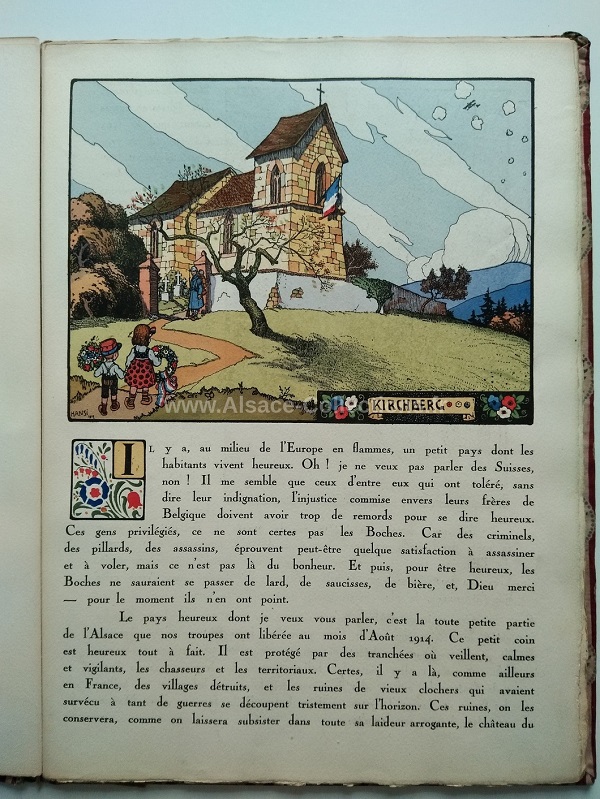 HANSI
KIRCHBERG
www.Alsace-Co
IL y a, au milieu de l'Europe en flammes, un petit pays dont les
habitants vivent heureux. Oh ! je ne veux pas parler des Suisses,
non ! Il me semble que ceux d'entre eux qui ont toléré, sans
dire leur indignation, l'injustice commise envers leurs frères de
Belgique doivent avoir trop de remords pour se dire heureux.
Ces gens privilégiés, ce ne sont certes pas les Boches. Car des criminels,
des pillards, des assassins, éprouvent peut-être quelque satisfaction à assassiner
et à voler, mais ce n'est pas là du bonheur. Et puis, pour être heureux, les
Boches ne sauraient se passer de lard, de saucisses, de bière, et, Dieu merci
— pour le moment ils n'en ont point.
Le pays heureux dont je veux vous parler, c'est la toute petite partie
de l'Alsace que nos troupes ont libérée au mois d'Août 1914. Ce petit coin
est heureux tout à fait. Il est protégé par des tranchées où veillent, calmes
et vigilants, les chasseurs et les territoriaux. Certes, il y a là, comme ailleurs
en France, des villages détruits, et les ruines de vieux clochers qui avaient
survécu à tant de guerres se découpent tristement sur l'horizon. Ces ruines, on les
conservera, comme on laissera subsister dans toute sa laideur arrogante, le château du